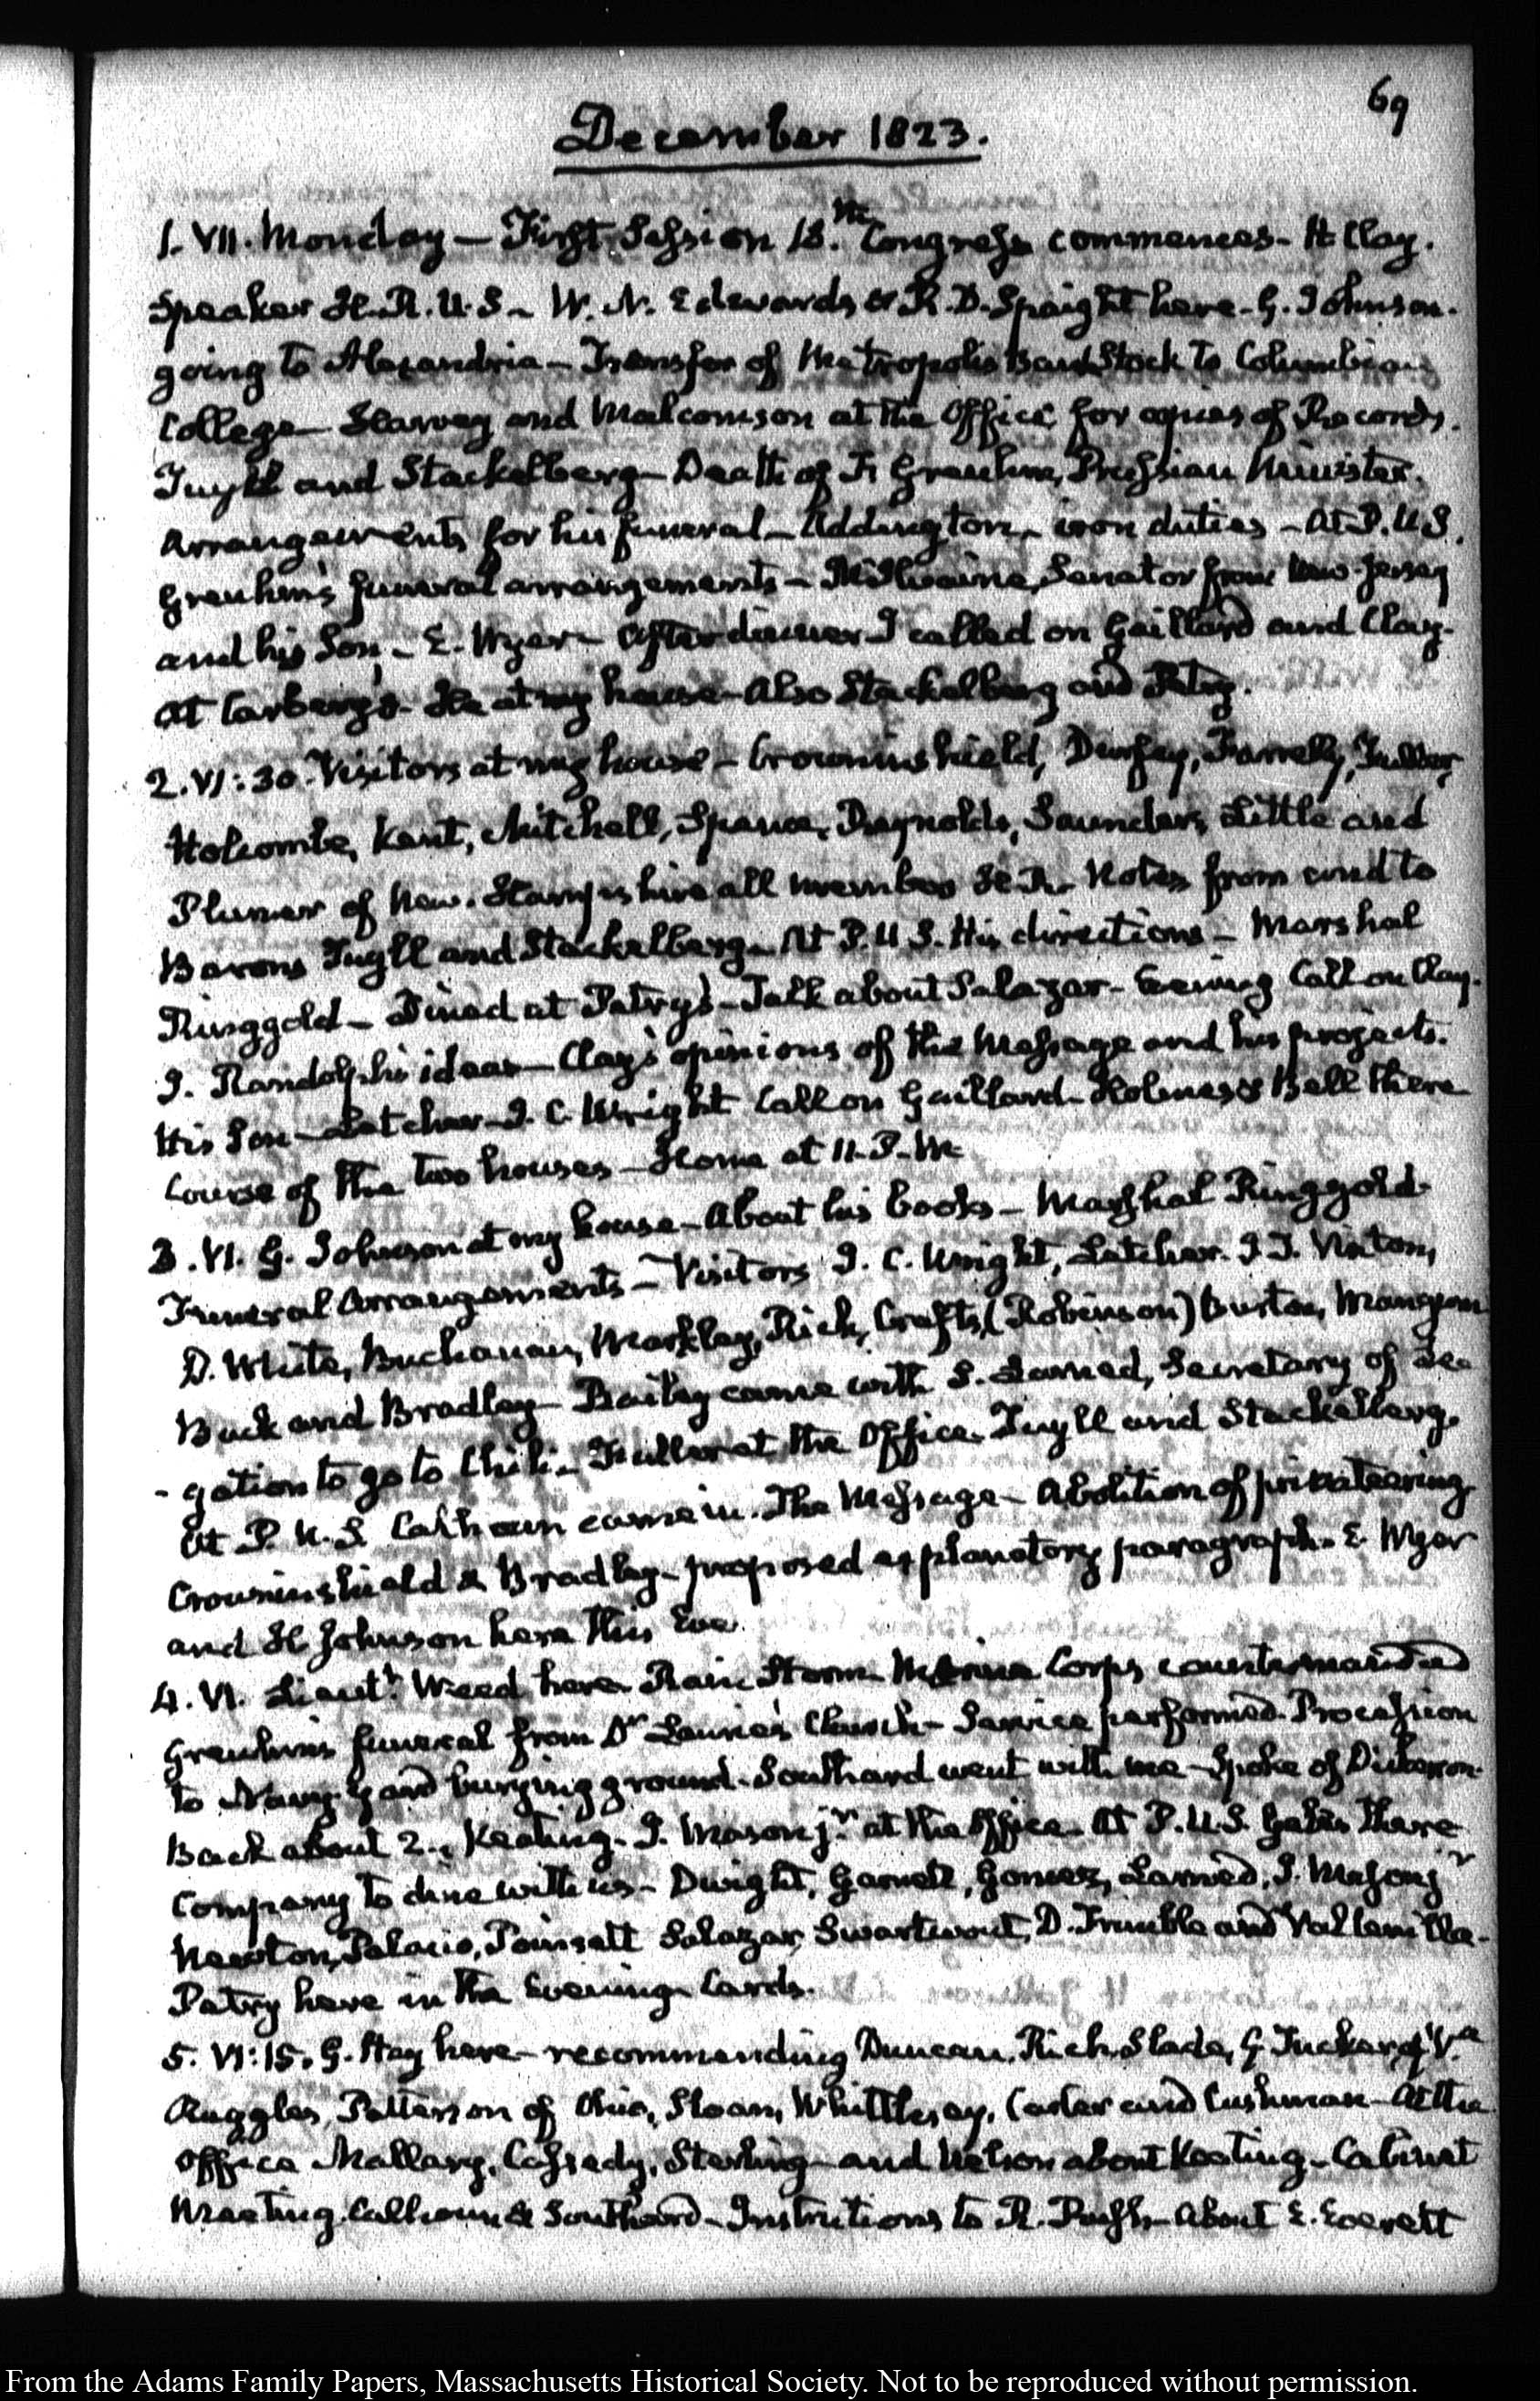 69
December 1823.
1. VII. Monday – First Session 18.th Congress commences – H Clay.
Speaker H. R. U. S – W. N. Edwards & R. D. Spaight here – G. Johnson.
going to Alexandria – Transfer of Metropolis Bank Stock to Columbian
College – Harvey and Malcomson at the Office for copies of Records.
Tuyll and Stackelberg – Death of F. Greuhm, Prussian Minister.
Arrangements for his funeral – Addington – iron duties – At P. U S.
Greuhm's funeral arrangements – McIlvaine, Senator from New-Jersey
and his Son – E. Wyer – After dinner I called on Gaillard and Clay.
At Carbery's – He at my house – Also Stackelberg and Petry.
2. VI: 30. Visitors at my house – Crowninshield, Durfey, Farrelly, Fuller,
Holcombe, Kent, Mitchell, Spence, Reynolds, Saunders, Little and
Plumer of New-Hampshire all members H. R. Notes from and to
Barons Tuyll and Stackelberg. At P. U S. His directions – Marshal
Ringgold – Dined at Petry's – Talk about Salazar – Evening Call on Clay.
J. Randolph's ideas – Clay's opinions of the Message and his projects.
His Son – Letcher – J. C. Wright Call on Gaillard – Holmes & Bell there
Course of the two houses – Home at 11. P. M
3. VI. G. Johnson at my house – About his books – Marshal Ringgold
Funeral Arrangements – Visitors J. C. Wright, Letcher. Vinton,
D. White, Buchanan, Markley, Rich, Crafts, (Robinson) Burton, Mangum
Buck and Bradley – Bailey came with S. Larned, Secretary of Le
- gation to go to Chili – Fuller at the Office. Tuyll and Stackelberg.
At P. U. S Calhoun came in. The Message – Abolition of privateering
Crowninshield & Bradley – proposed explanatory paragraph. E. Wyer
and H Johnson here this Eve.
4. VI. Lieutt. Weed here. Rain Storm – Marine Corps countermanded
Greuhm's funeral from Dr Laurie's Church – Service performed. Procession
to Navy-Yard burying ground. Southard went with me – Spoke of Dickerson.
Back about 2. Keating. J. Mason jr. at the Office. At P. U. S. Gales there
Company to dine with us – Dwight, Garnett, Gomez, Larned, J. Mason jr
Newton, Palacio, Poinsett Salazar, Swartwout, D. Trimble and Vallenilla.
Petry here in the Evening. Cards.
5. VI: 15. G. Hay here – recommending Duncan. Rich. Slade, G Tucker of V.a
Ruggles, Patterson of Ohio, Sloan, Whittlesey, Carter and Cushman – At the
Office Mallary, Cassedy, Sterling and Nelson about Keating – Cabinet
Meeting. Calhoun & Southard – Instructions to R. Rush – About E. Everett
From the Adams Family Papers, Massachusetts Historical Society. Not to be reproduced without permission.